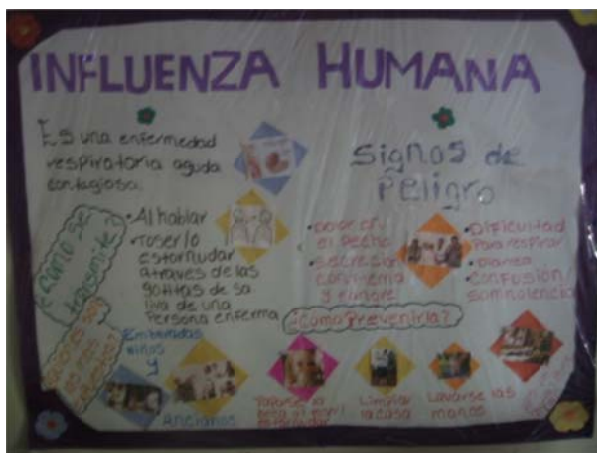 INFLUENZA HUMANA
Es una enfermedad
respiratoria aguda
contagiosa.
¿Como se
transmite
•Al hablar
•Toser lo
estornudar
atraves de las
gotitas de sa
liva de una
Persona enferma
Signos de
Peligro
•Dolor en
el pecho
•secreción
con flema
y sangre
•Dificultad
Para respirar
•Diarrea
•Confusión/
somnolencia
¿Cómo Prevenirla?
Embarazadas
niños
Ancianos
Taparse la
boca al
estornudar
Limpiar
la casa
Lavarse las
manos